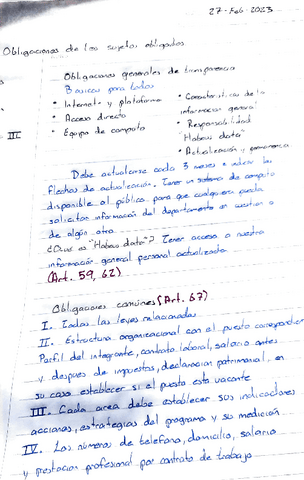 27-Feb-2023
Obligaciones de los sujetos obligados
Obligaciones generales de transparencia
Básicas para todos
• Internet y plataforma
• Acceso directo
• Equipo de computo
• Características de la
información general
• Responsabilidad
"Habeas data"
• Actualización y permanencia
III
Debe actualizarse cada 3 meses e indicar las
fechas de actualización. Tener un sistema de computo
disponible al público, para que cualquiera pueda
solicitar información del departamento en cuestion o
de algún otro.
¿Que es "Habeas data"? Tener acceso a nuestra
información general personal actualizada
(Art. 59, 62)
Obligaciones comúnes (Art. 67)
I. Todas las leyes relacionadas
II. Estructura organizacional con el puesto correspondiente
Perfil del integrante, contrato laboral, salario antes
y despues de impuestos, declaracion patrimonial, en
su caso establecer si el puesto esta vacante
III. Cada area debe establecer sus indicadores
acciones, estrategias del programa y su medición
IV. Los números de telefono, domicilio, salario
y prestacion profesional por contrato de trabajo